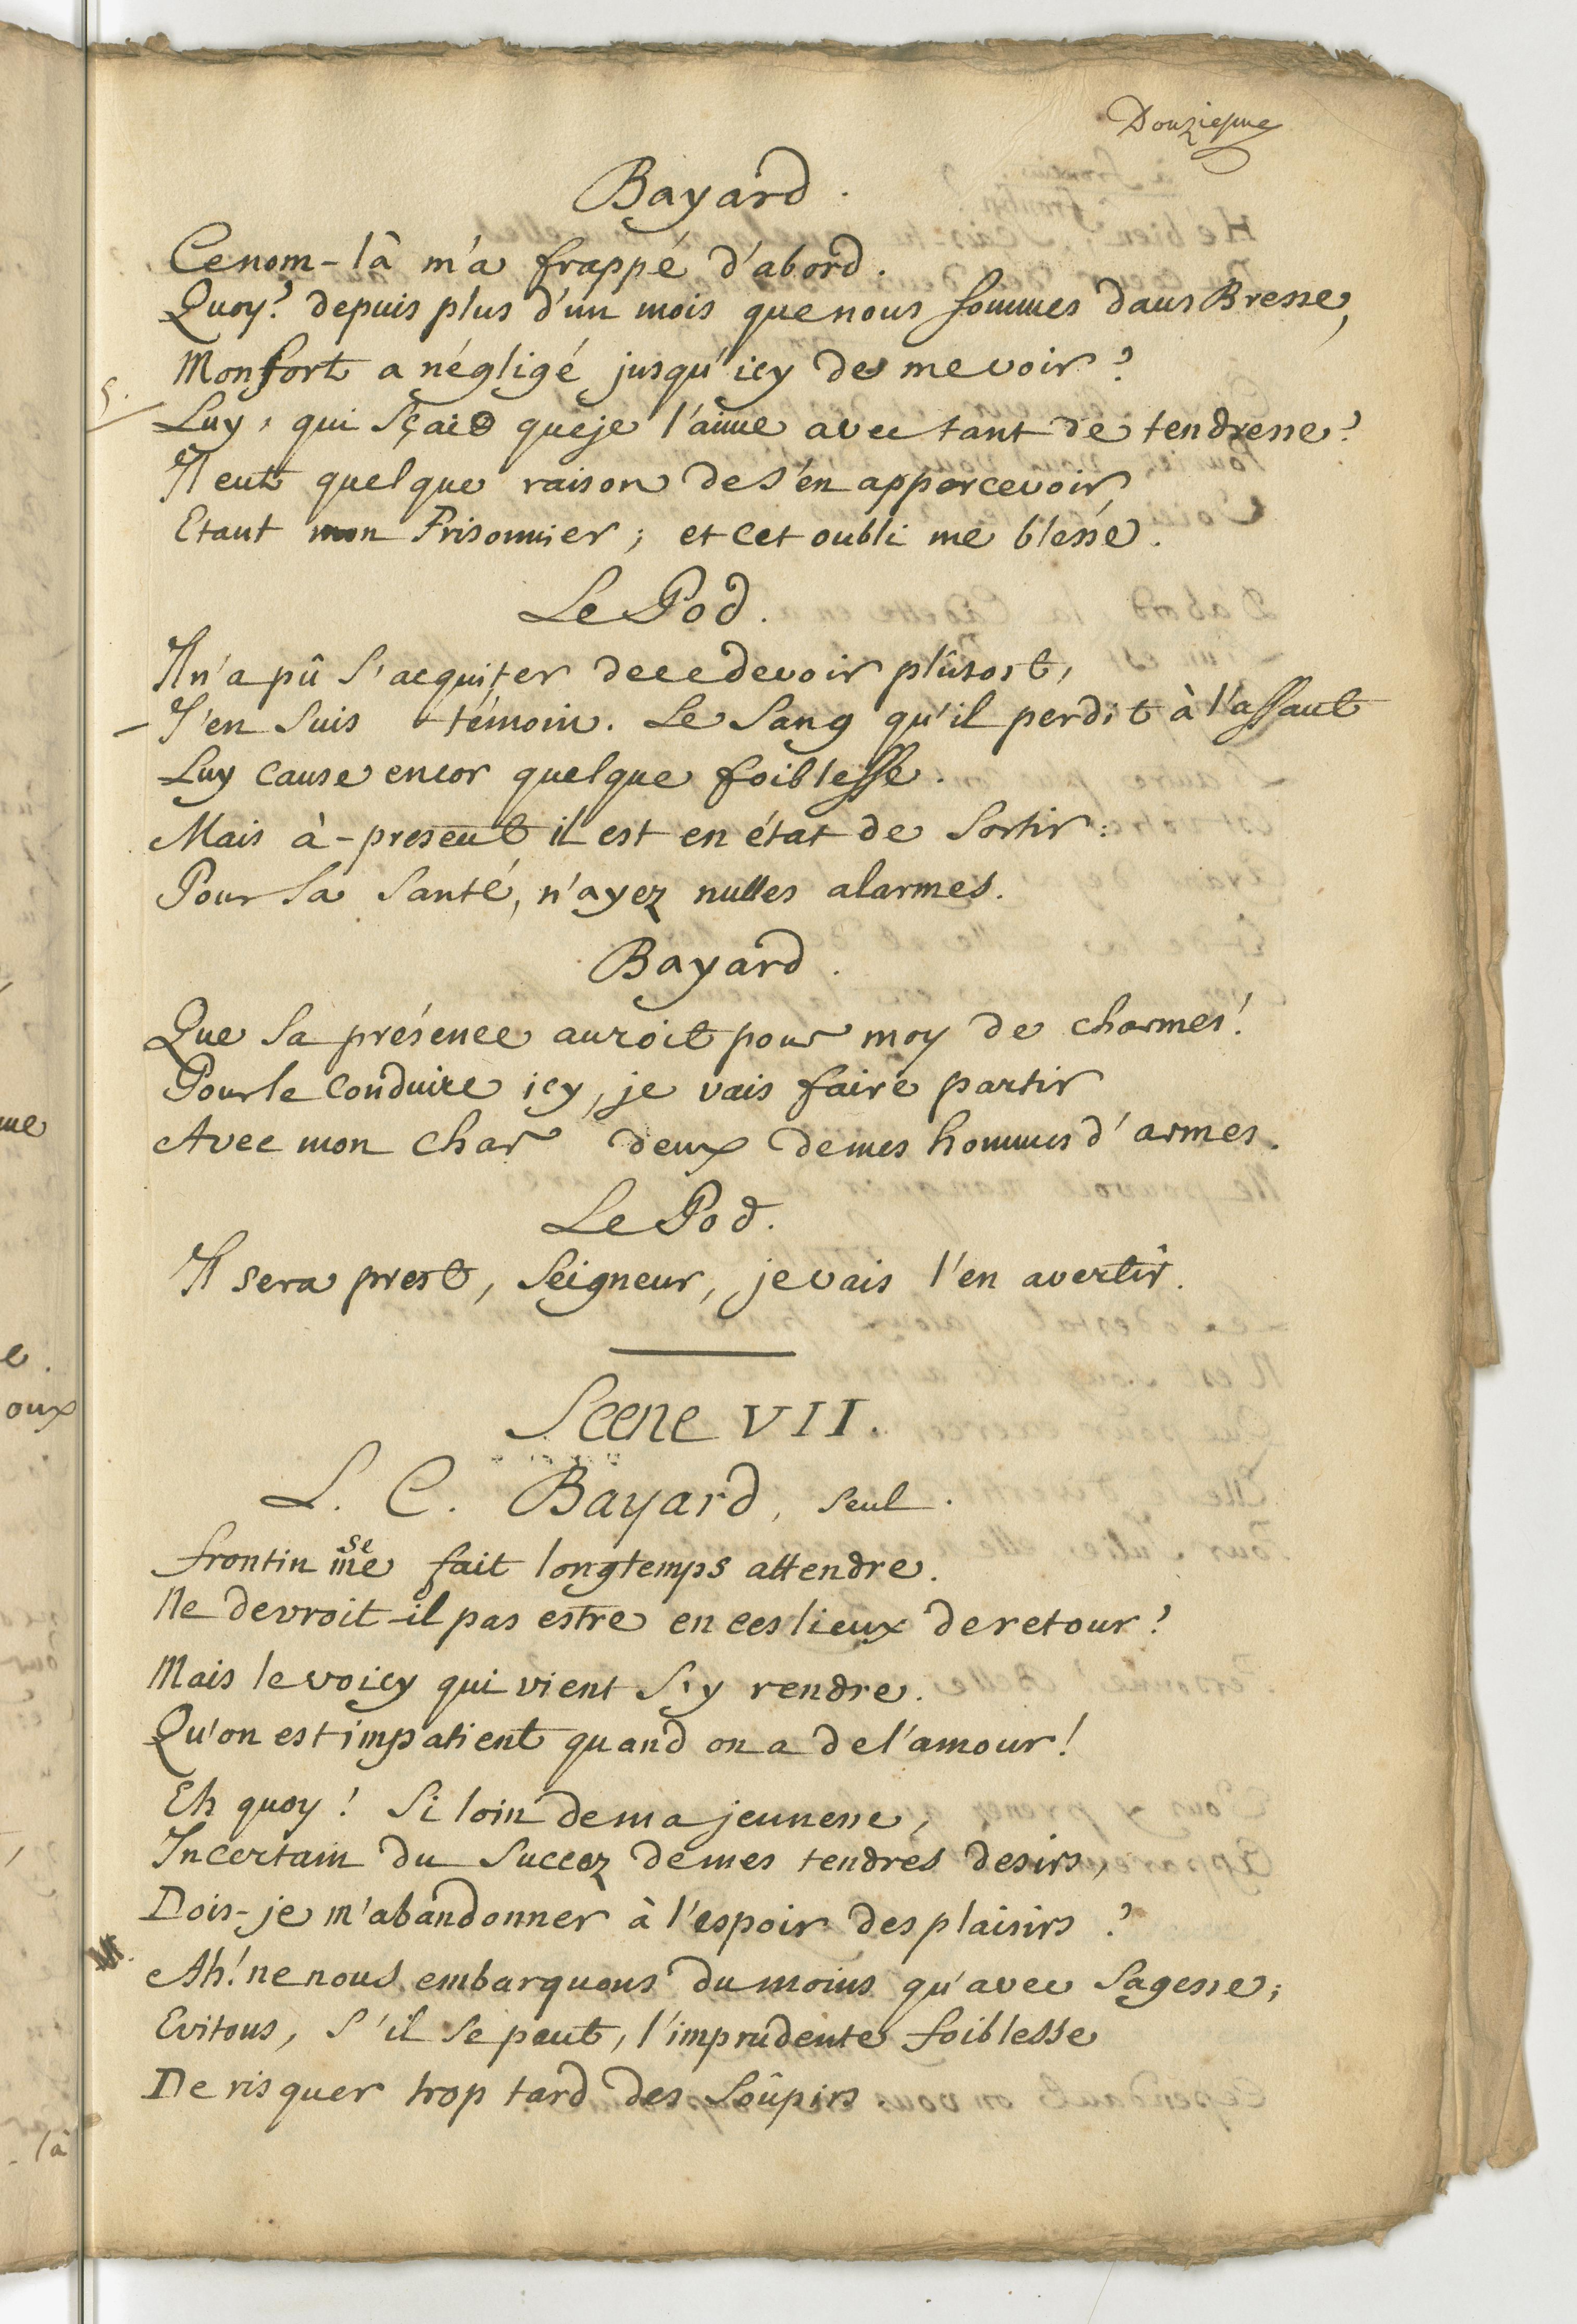 Douziesme
Bayard.
Ce nom-là m'a frappé d'abord.
Quoy? depuis plus d'un mois que nous sommes dans Bresse,
Monfort a négligé jusqu'icy de me voir?
Luy, qui sçait que je l'aime avec tant de tendresse?
Il eut quelque raison de s'en appercevoir
Etant mon Prisonnier; et cet oubli me blesse.
Le Pod.
Il n'a pû s'acquiter de ce devoir plûtost,
J'en suis témoin. Le sang qu'il perdit à l'assaut
Luy cause encor quelque foiblesse.
Mais à-present il est en état de sortir:
Pour sa santé, n'ayez nulles alarmes.
Bayard.
Que sa présence auroit pour moy de charmes!
Pour le conduire icy, je vais faire partir
Avec mon char deux de mes hommes d'armes.
Le Pod.
Il sera prest, Seigneur, je vais l'en avertir.
Scene VII.
L. C. Bayard, seul.
se
frontin me fait longtemps attendre.
Ne devroit-il pas estre en ces lieux de retour?
Mais le voicy qui vient s'y rendre.
Qu'on est impatient quand on a de l'amour!
Eh quoy! Si loin de ma jeunesse,
Incertain du succez de mes tendres desirs,
Dois-je m'abandonner à l'espoir des plaisirs?
Ah! ne nous embarquons du moins qu'avec sagesse;
Evitons, s'il se peut, l'imprudente foiblesse
De risquer trop tard des soûpirs